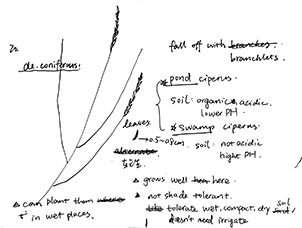 de.coniferous.
fall off with branches.
branchlets
* pond ciperus.
soil: organic & acidic
lower PH
* swamp ciperus.
soil: not acidic
hight PH.
leaves.
→0.5~0.8cm.
互生
△ grows well here.
△ can plant them where
in wet places.
△ not shade tolerant.
tolerate wet, compact, dry soil
doesn't need irrigate